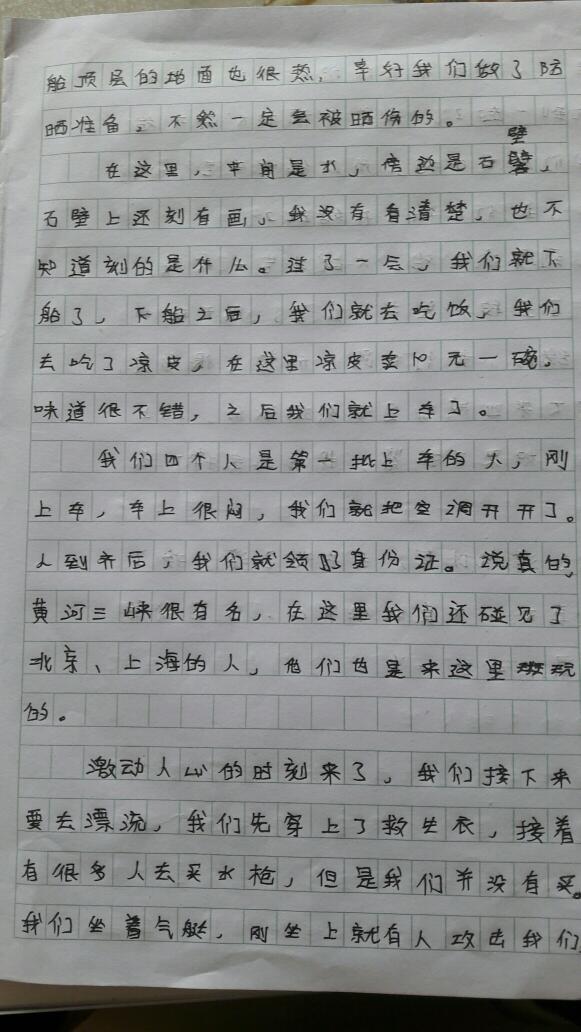 船顶层的地面也很热，幸好我们做了防
晒准备，不然一定会被晒伤的。
在这里，中间是水，旁边是石壁，
石壁上还刻有画，我没有看清楚，也不
知道刻的是什么。过了一会，我们就下
船了，下船之后，我们就去吃饭，我们
去吃了凉皮，在这里凉皮卖10元一碗，
味道很不错，之后我们就上车了。
我们四个人是第一批上车的人，刚
上车，车上很闷，我们就把空调开开了。
人到齐后，我们就领好身份证。说真的，
黄河三峡很有名，在这里我们还碰见了
北京、上海的人，他们也是来这里玩
的。
激动人心的时刻来了，我们接下来
要去漂流，我们先穿上了救生衣，接着
有很多人去买水枪，但是我们并没有买。
我们坐着气艇，刚坐上就有人攻击我们，